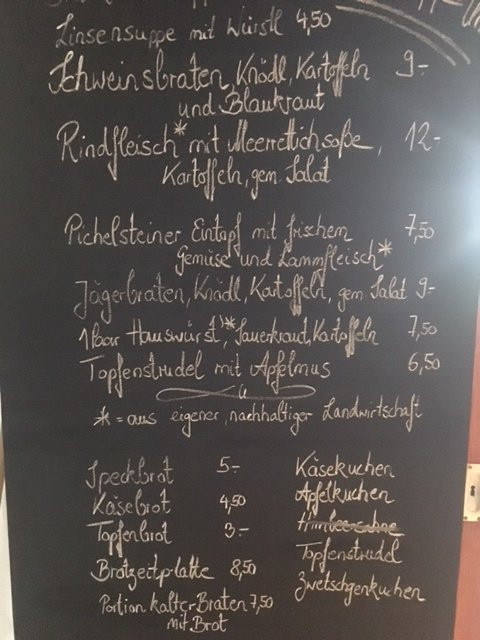 Linsensuppe mit Würstl 4,50
Schweinsbraten, Knödl, Kartoffeln 9.-
und Blaukraut
Rindfleisch* mit Meerrettichsoße, 12.-
Kartoffeln, gem. Salat
Pichelsteiner Eintopf mit frischem 7,50
Gemüse und Lammfleisch*
Jägerbraten, Knödl, Kartoffeln, gem. Salat 9.-
1 Paar Hauswürst'*, Sauerkraut, Kartoffeln 7,50
Topfenstrudel mit Apfelmus 6,50
* = aus eigener, nachhaltiger Landwirtschaft
Speckbrot 5.-
Käsebrot 4,50
Topfenbrot 3.-
Brotzeitplatte 8,50
Portion kalter Braten 7,50
mit Brot
Käsekuchen
Apfelkuchen
Himbeersahne
Topfenstrudel
Zwetschgenkuchen